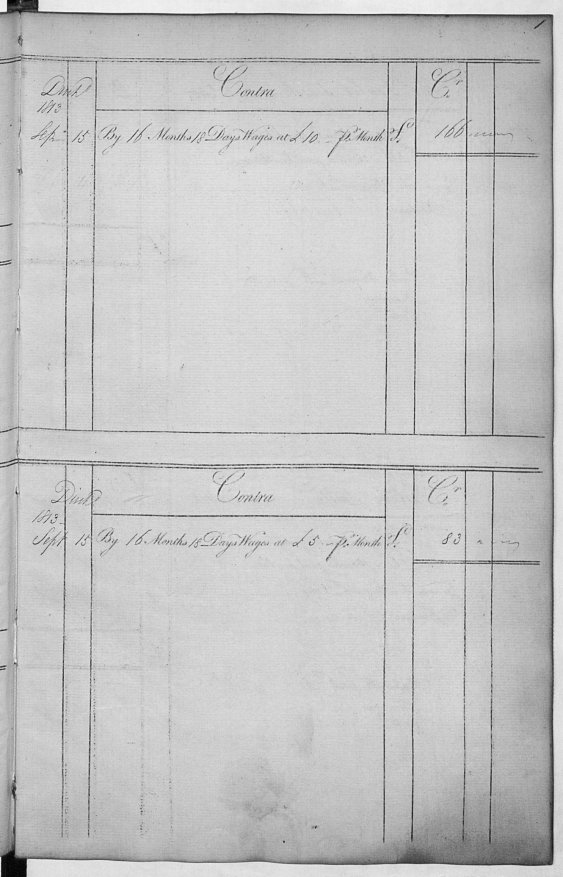 1
Contra Cr
Disch'd
1813
Sept 15 By 16 Months 18 Days Wages at £ 10 pr Month £ 166
Contra Cr
Disch'd
1813
Sept 15 By 16 Months 18 Days Wages at £ 5 pr Month £ 83